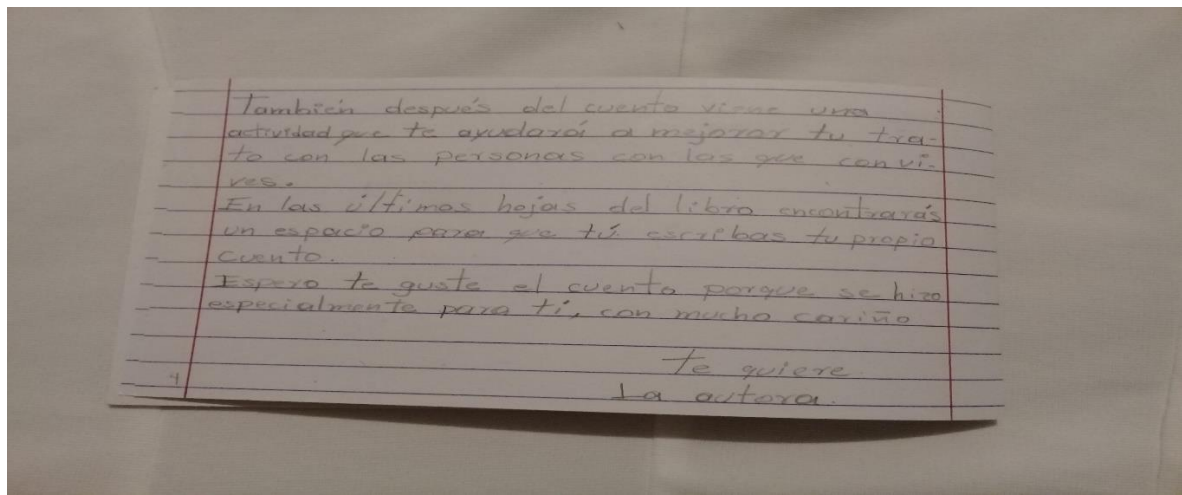 También después del cuento viene una
actividad que te ayudará a mejorar tu tra-
to con las personas con las que convi-
ves.
En las últimas hojas del libro encontrarás
un espacio para que tú escribas tu propio
cuento.
Espero te guste el cuento porque se hizo
especialmente para tí, con mucho cariño
te quiere
La autora.
4